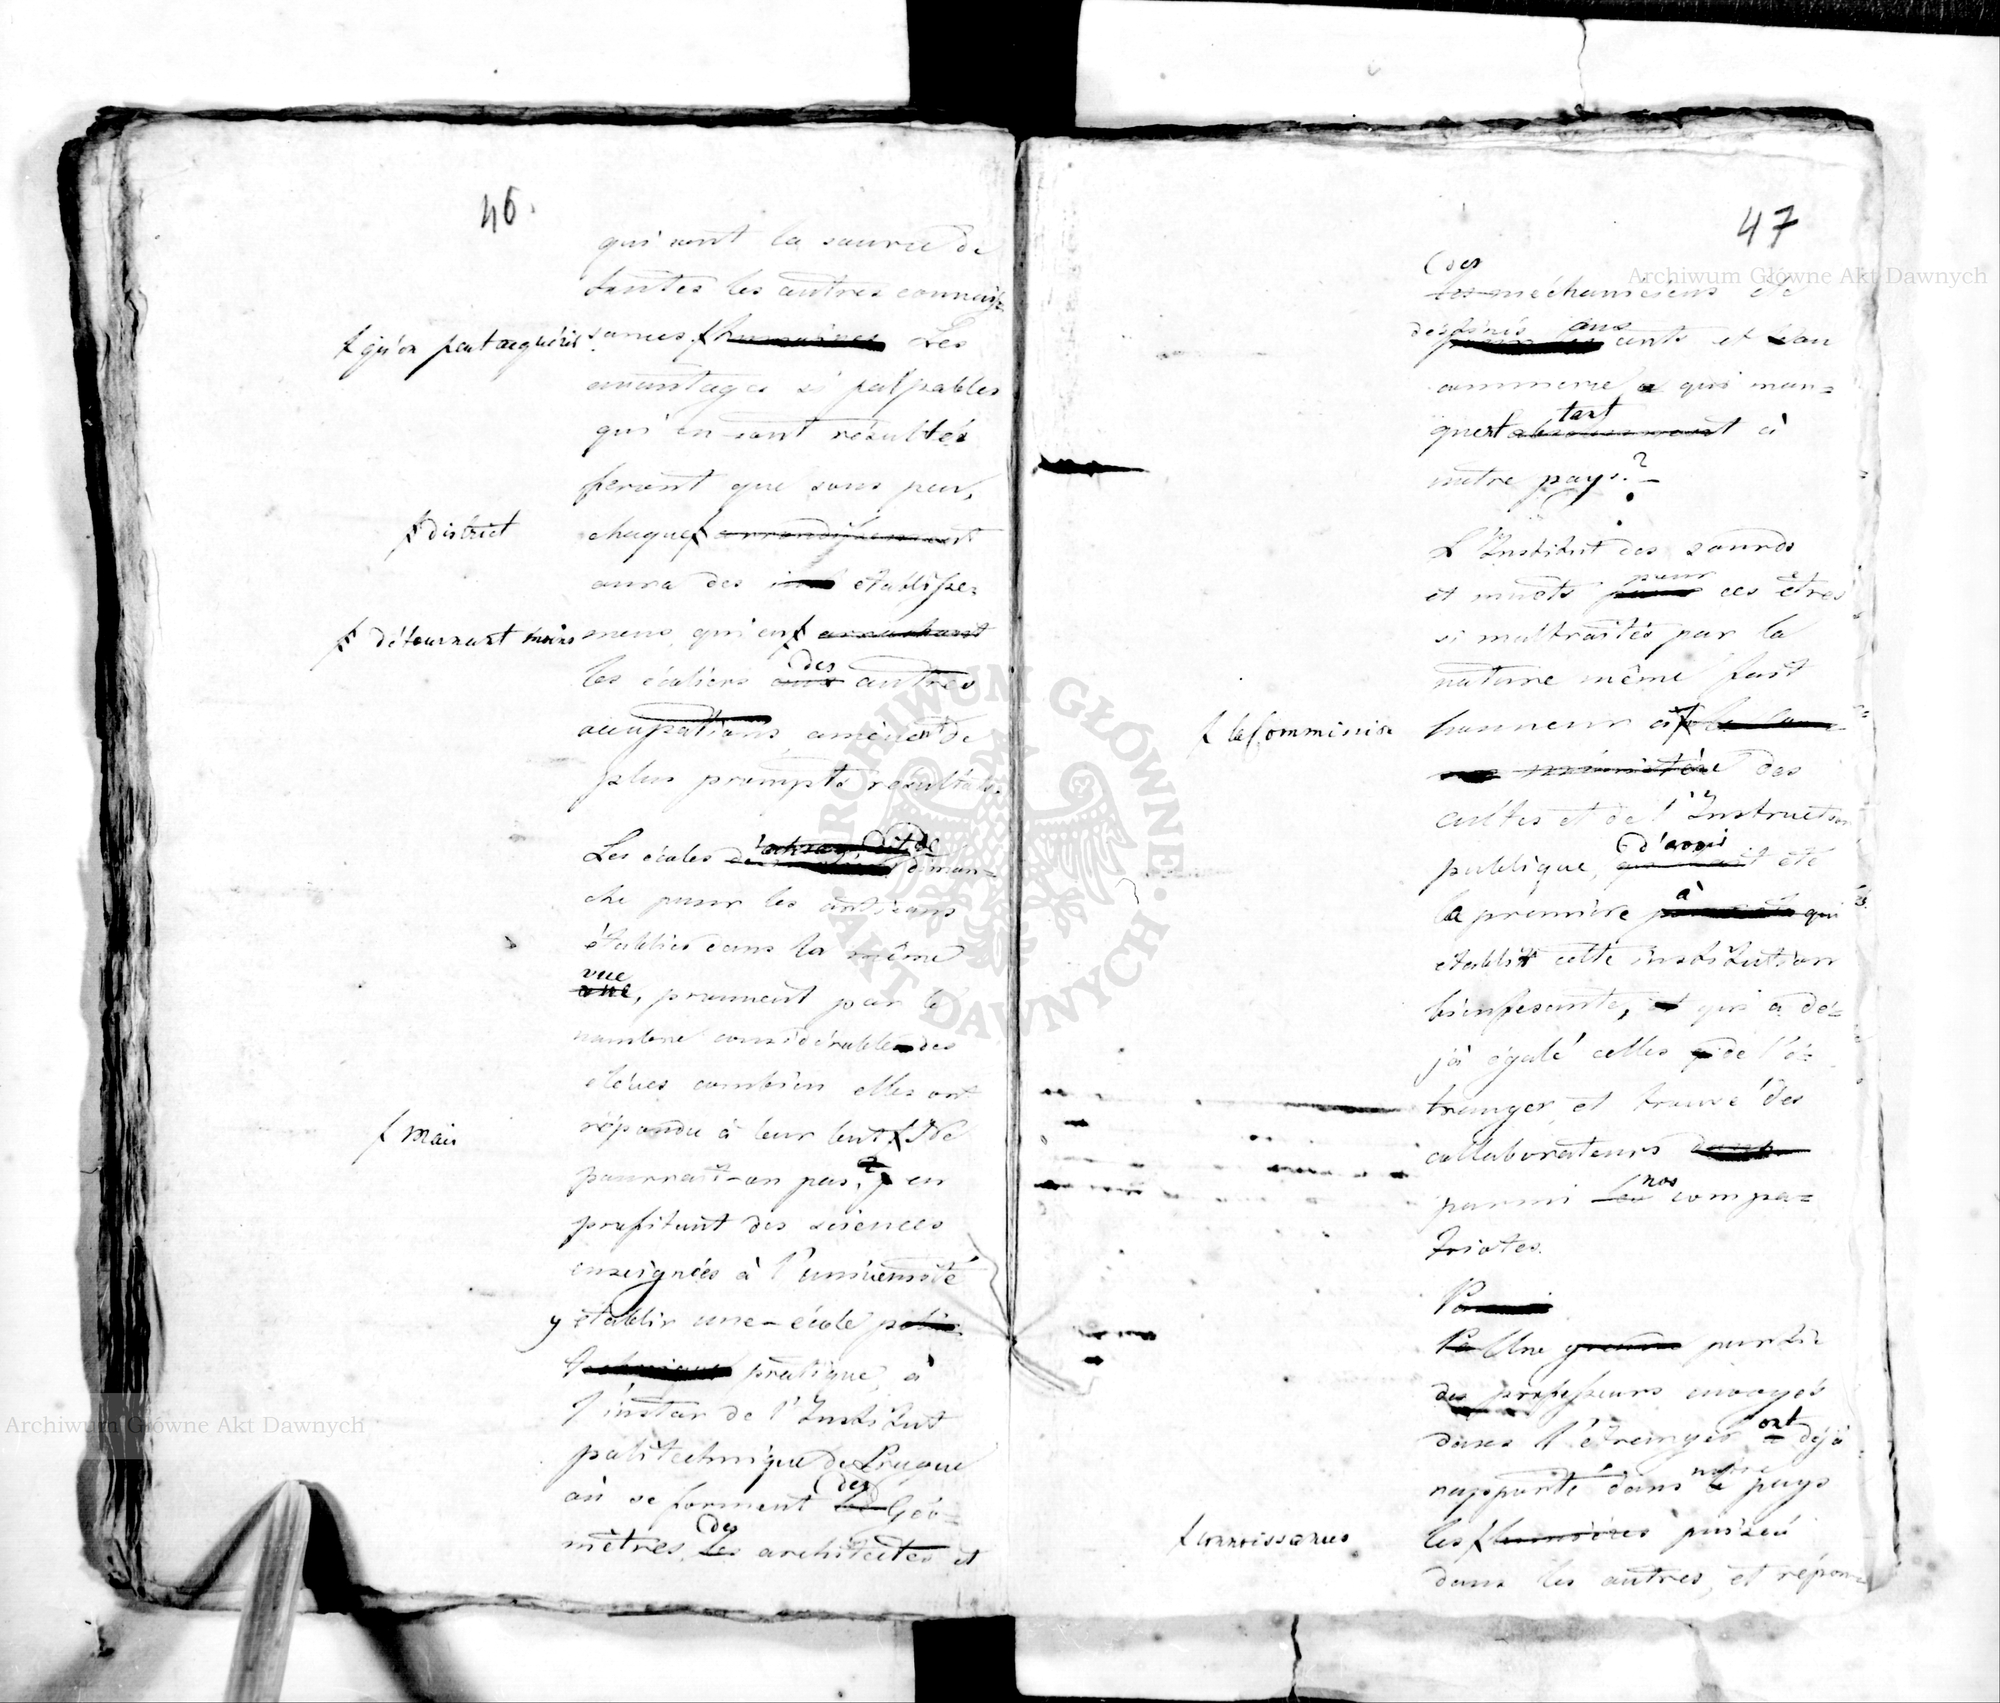 46.
qui sont la source de
toutes les autres connais=
f qu'on peut acquérir sances f humaines Les
avantages si palpables
qui en sont résultés
feront que sous peu,
f district chaque f arrondissement
aura des établisse=
f détournant moins mens, qui en f arrachant
les écoliers aux des autres
occupations, amènent de
plus prompts résultats.
Les écoles de diman=
che pour les artisans
établies dans la même
vue
, prouvent par le
nombre considérable des
élèves combien elles ont
f Mais répondu à leur but f Ne
pourrait-on pas, en
profitant des sciences
enseignées à l'université
y établir une école poli=
technique pratique, à
l'instar de l'Institut
politechnique de Prague
où se forment les des Géo=
mètres, les des architectes et
47
des
les méchaniciens etc
destinés aux
pour les arts et au
commerce qui man=
tant
quent absolument à
notre pays?
L'Institut des sourds
et muets pour ces êtres
si maltraités par la
nature même fait
f la Commission honneur à f
ministère des
cultes et de l'Instruction
publique, d'avoir été
la première à qui
établit cette institution
bienfesante, et qui a dé=
jà égalé celles de l'é=
tranger, et trouvé des
collaborateurs
parmi les nos compa=
triotes.
Parmi
Une grande partie
des professeurs envoyés
dans l'étranger ont déjà
rapporté dans le notre pays
f connoissances les f lumières puisées
dans les autres, et répon=
Archiwum Główne Akt Dawnych
Archiwum Główne Akt Dawnych
ARCHIWUM GŁÓWNE AKT DAWNYCH